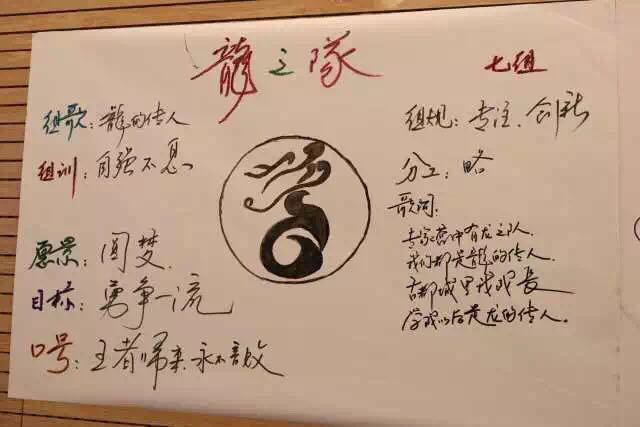 龍之隊
七组
组歌：龍的传人
组训：自强不息
愿景：圆梦
目标：勇争一流
口号：王者归来，永不言败
组规：专注、创新
分工：略
歌词：
专家营中有龙之队，
我们都是龍的传人。
古都城里我成長
学成以后是龙的传人。